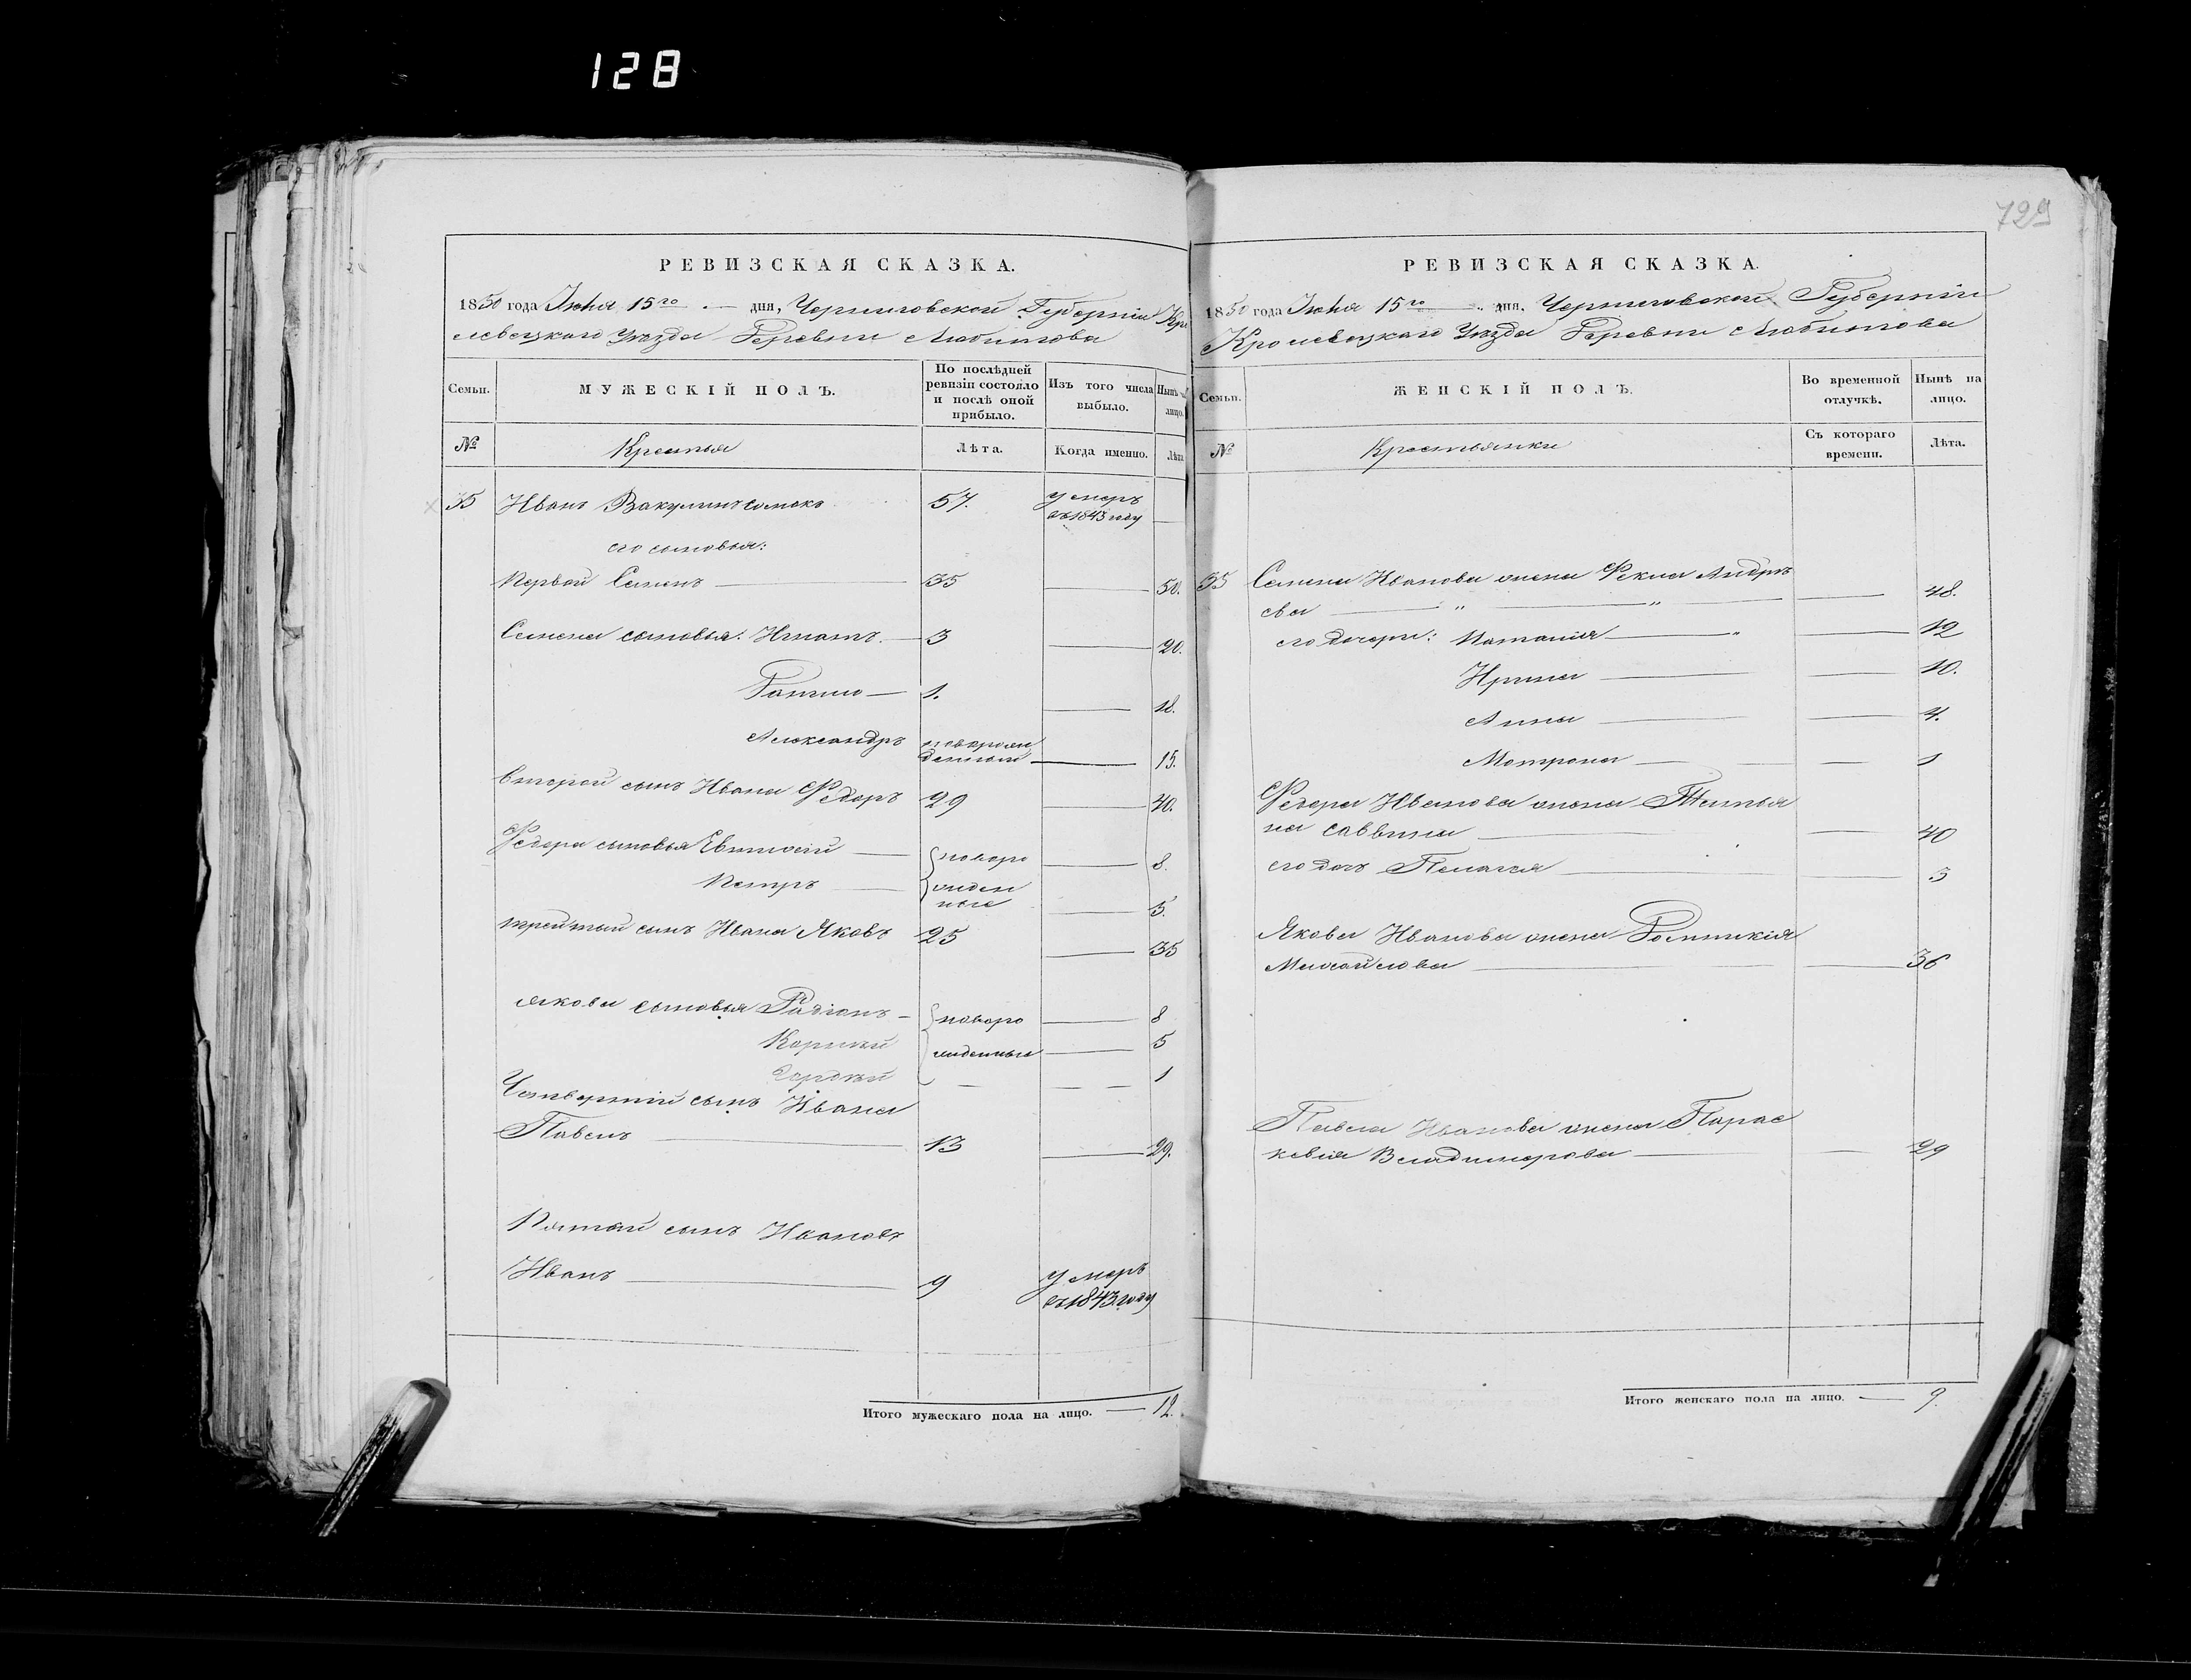 128
РЕВИЗСКАЯ СКАЗКА.
1850 года Июня 15го дня, Черниговской Губерніи Кро
левецкаго Уѣзда Деревни Любитова
Семьи.
МУЖЕСКІЙ ПОЛЪ.
По послѣдней ревизіи состояло и послѣ оной прибыло.
Изъ того числа выбыло.
Нынѣ на лицо.
№
Крестья
Лѣта.
Когда именно.
Лѣта
35 Иванъ Вакулинъ 57. умеръ
въ 1843 году
его сыновья:
Первой Семенъ 35 50.
Семена сыновья: Игнатъ 3 20.
1. 18.
Александръ новорож
денный 15.
Второй сынъ Ивана Федоръ 29 40.
Федора сыновья Евтихій новоро 8.
Петръ жден
ные 5.
третый сынъ Ивана Яковъ 25 35
Якова сыновья Родіонъ новоро 8
Корнѣй жденные 5
1
Четвертій сынъ Ивана
Павелъ 13 29.
Пятый сынъ Ивановъ
Иванъ 9 умеръ
въ 1843 году
Итого мужескаго пола на лицо. — 12.
729
РЕВИЗСКАЯ СКАЗКА.
1850 года Июня 15го дня, Черниговской Губерніи
Кролевецкаго Уѣзда Деревни Любитова
Семьи.
ЖЕНСКІЙ ПОЛЪ.
Во временной отлучкѣ.
Нынѣ на лицо.
№
Крестьянки
Съ котораго времени.
Лѣта.
35 Семена Иванова жена Фекла Андрѣ
ева " " 48.
его дочери: Наталія " 12
Ирина 10.
Анна 4.
Мотрона 1
Федора Иванова жена Татья
на Саввина 40
его дочь Пелагея 3
Якова Иванова жена Домникія
Михайлова 36
Павла Иванова жена Парас
кевія Владимерова 29
Итого женскаго пола на лицо. — 9.